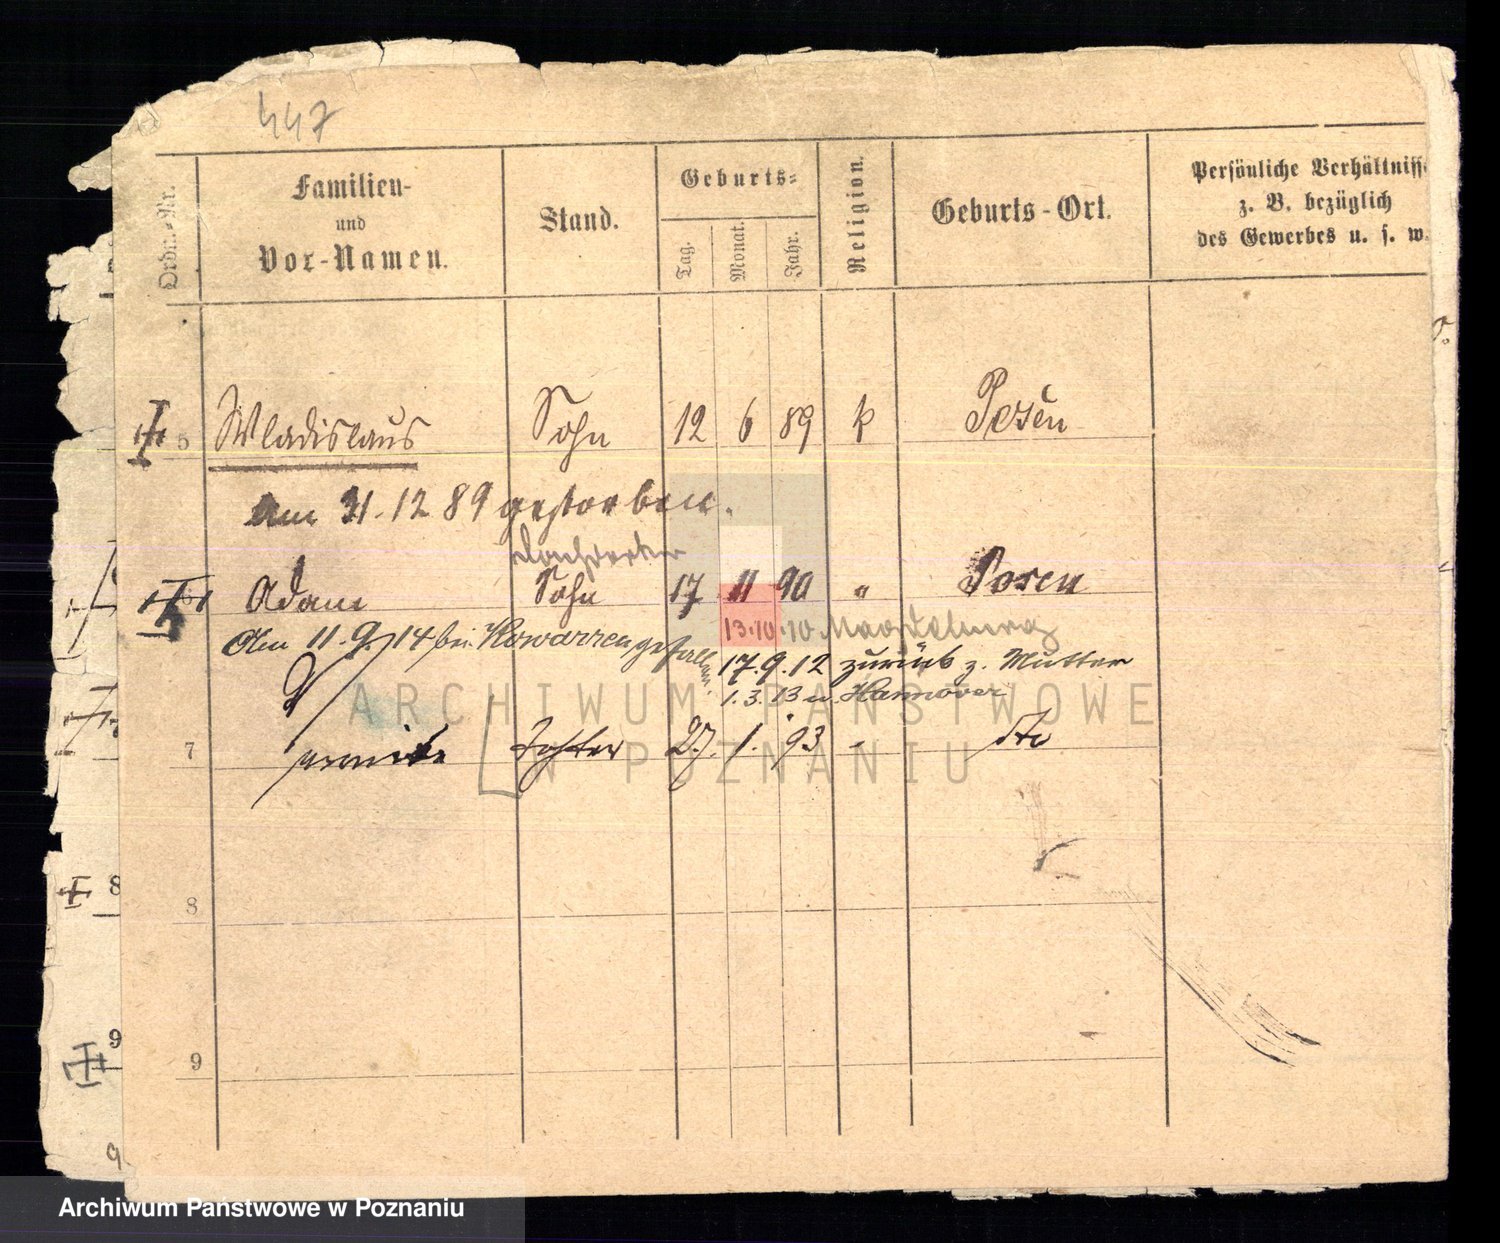 447
Ordn.-Nr.
Familien-
und
Vor-Namen.
Stand.
Geburts-
Tag.
Monat.
Jahr.
Religion.
Geburts-Ort.
Persönliche Verhältniss
z. B. bezüglich
des Gewerbes u. s. w.
5 Wladislaus Sohn 12 6 89 k Posen
Am 31.12 89 gestorben.
Adam Sohn 17 11 90 " Posen
Am 11.9.14 bei Kowarren gefallen.
13.10.10 Magdeburg
17.9.12 zurück z. Mutter
1.3.13 n. Hannover
7 Tochter 27. 1. 93 " dto
8
9
8
9
9
ARCHIWUM PAŃSTWOWE
W POZNANIU
Archiwum Państwowe w Poznaniu